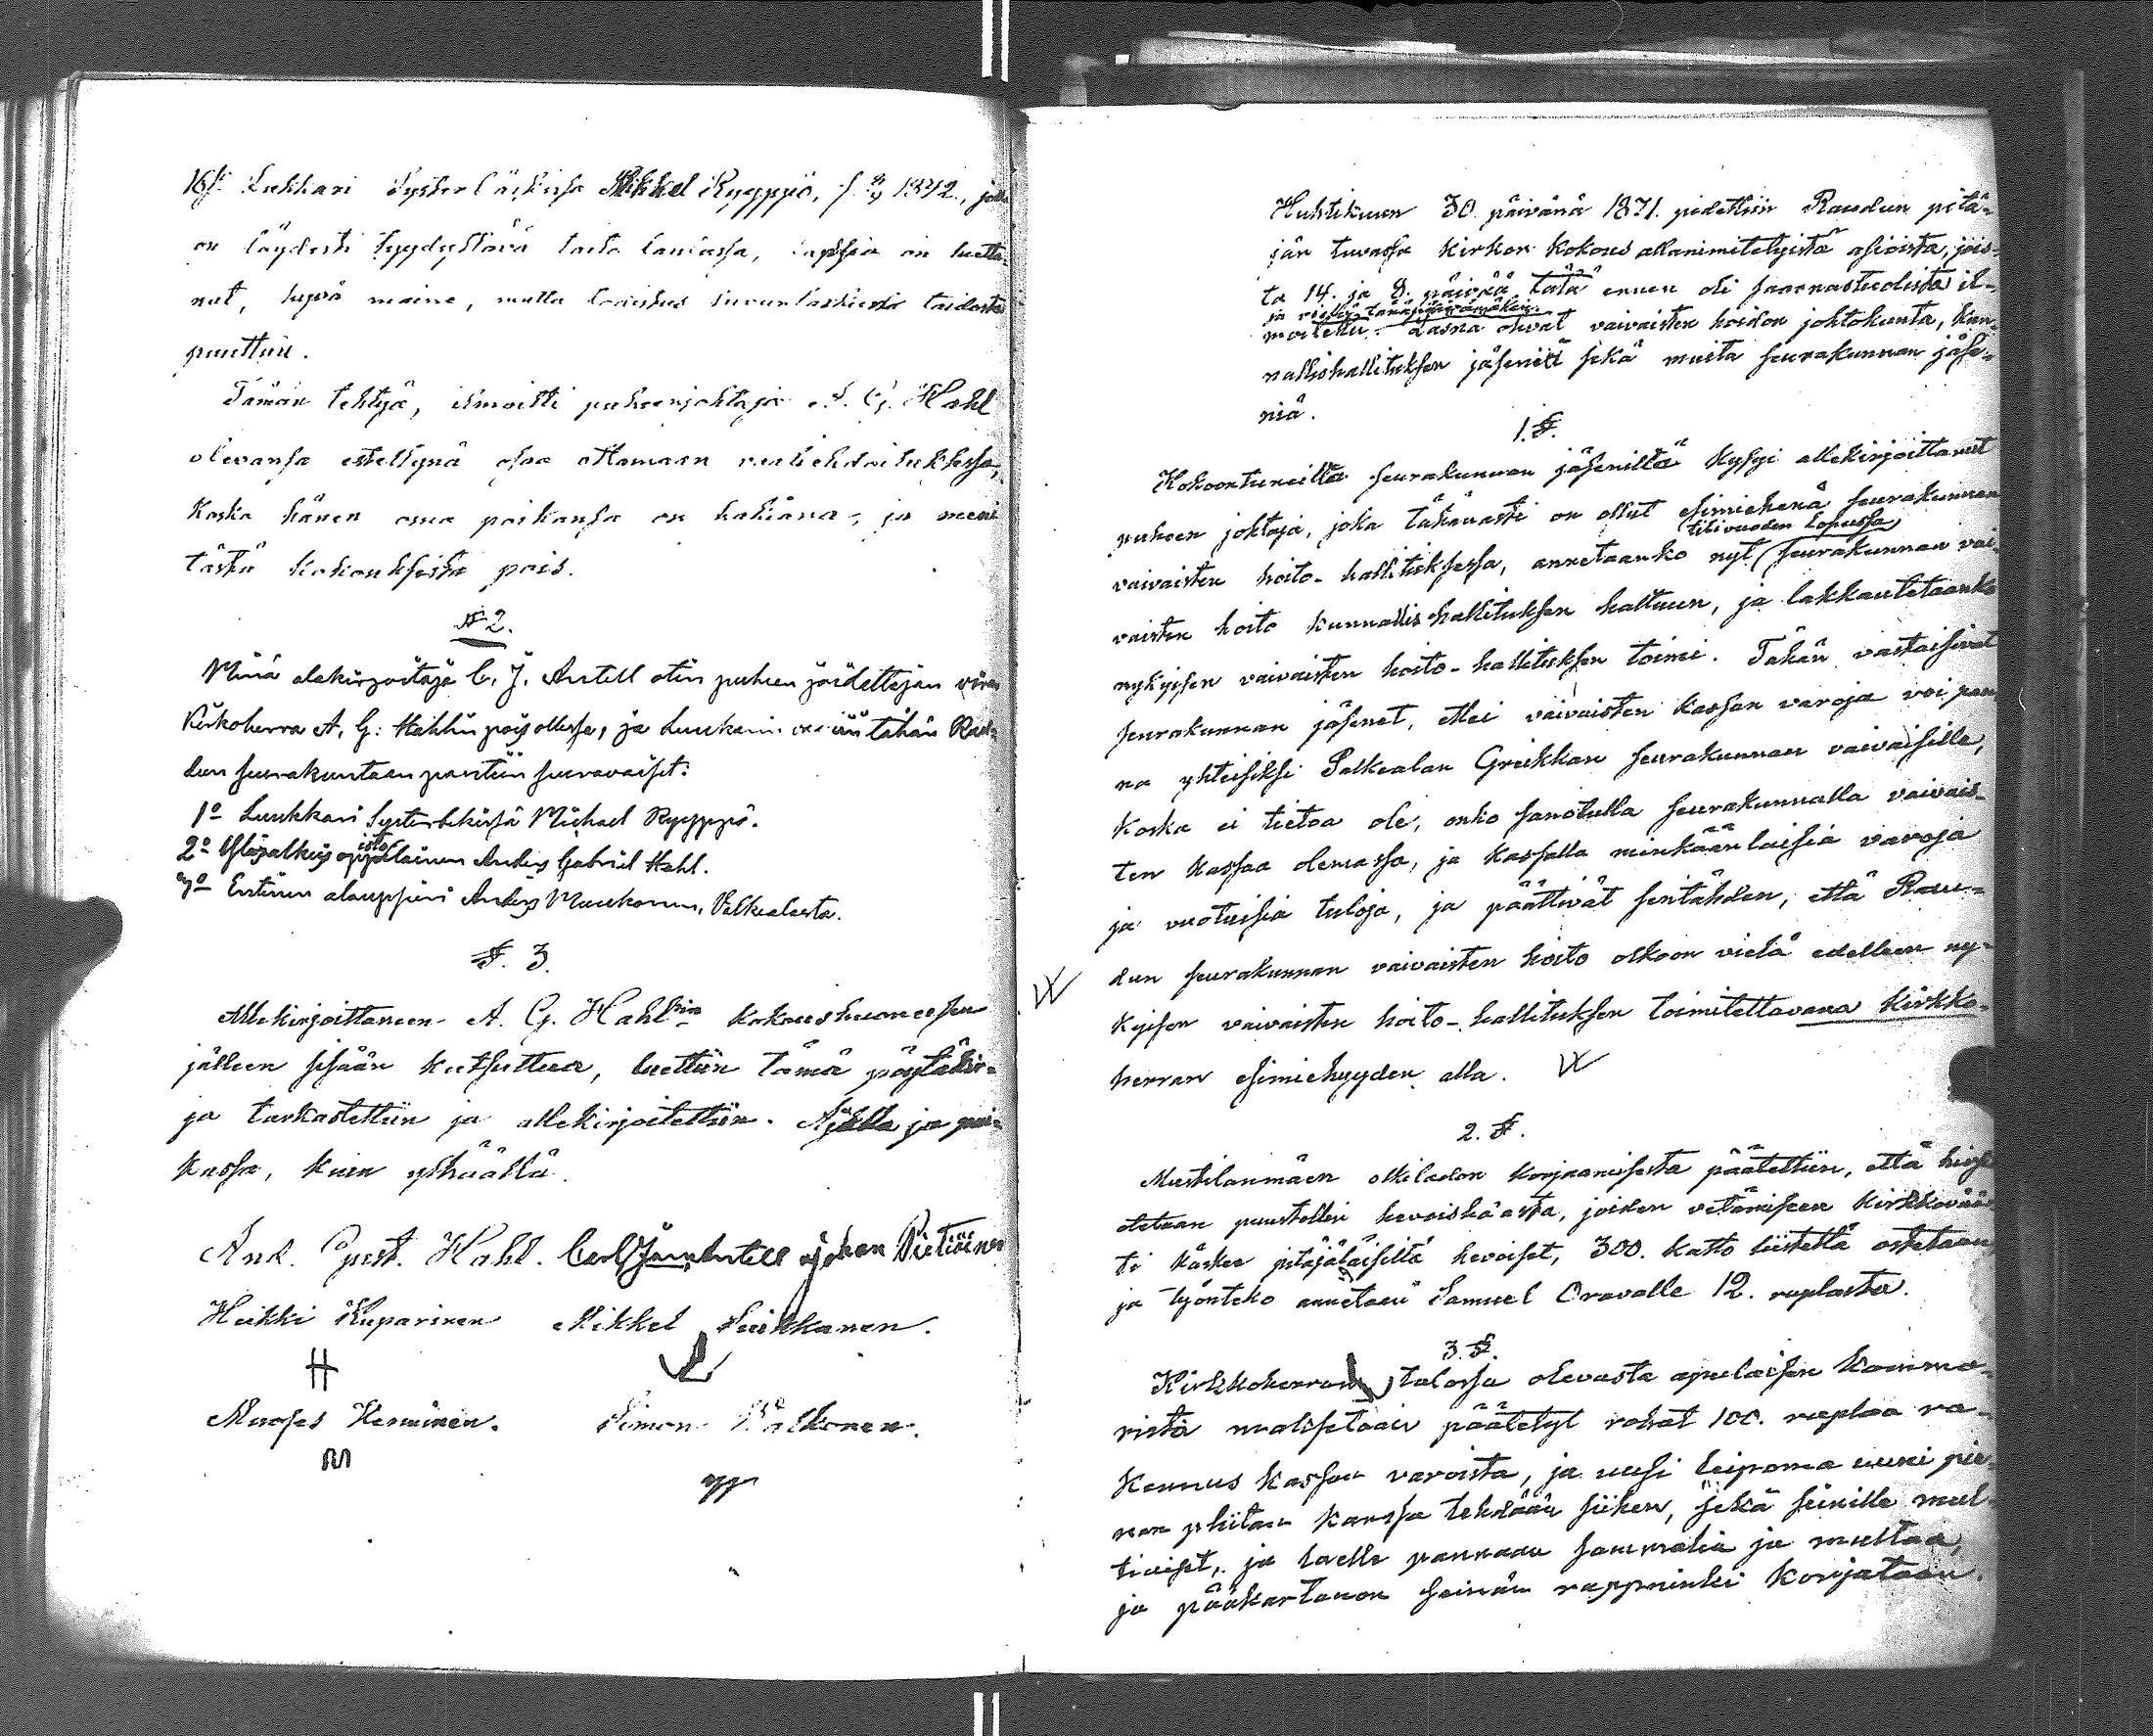 16§. Lukkari Systerbäckissa Mikkel Ryyppö, s. 1842., jolla
on täydesti tyydyttävä taito laulussa, lapsia on luetta-
nut, hyvä maine, mutta todistus taidosta
puuttuu.
Tämän tehtyä, ilmoitti puheenjohtaja A. G. Hahl
olevansa estettynä osaa ottamaan vaaliehdoituksessa,
koska hänen oma poikansa on hakiana, ja meni
tästä kokouksesta pois.
§ 2.
Minä alekirjoitaja C. J. Antell otin puheen joidettejan viran
Kirkoherra A. G. Hahlin pois ollessa, ja Luukarin tähän Rau-
dun seurakuntaan pantiin seuraavaiset:
1o Luukkari Systerbekissä Michael Ryyppö.
2o Yläpalkeis opistolainen Anders Gabriel Hahl.
3o Entinen alauppseri Anders Muukonen, Valkealasta.
§. 3.
Allekirjoittaneen A. G. Hahlin kokoushuoneesen
jälleen sisään kutsuttua, luettiin tämä pöytäkir-
ja tarkastettiin ja allekirjoitettiin. Ajalla ja pai-
kassa, kuin ylhäällä.
And. Gust. Hahl. Carl Joh. Antell Johan Pietiäinen
Heikki Kuparinen Mikkel Suikkanen.
Mooses Henninen. Simon Pälkonen.
Huhtikuun 30. päivänä 1871. pidettiin Raudun pitä-
jän tuvassa kirkon kokous allanimitetyistä asioista, jois-
ta 14. ja 8. päivää tätä ennen oli saarnastuolista il-
ja vielä tänäpäivänäkin.
moitettu. Läsnä olivat vaivaisten hoidon johtokunta, kun-
nallishallituksen jäseniä sekä muita seurakunnan jäse-
niä.
1. §.
Kokoontuneilta seurakunnan jäseniltä kysyi allekirjoittanut
puheen johtaja, joka tähänasti on ollut esimiehenä seurakunnan
tilivuoden lopussa
vaivaisten hoito-hallituksessa, annetaanko nyt seurakunnan vai-
vaisten hoito kunnallishallituksen haltuun, ja lakkautetaanko
nykyisen vaivaisten hoito-hallituksen toimi. Tähän vastaisivat
seurakunnan jäsenet, ettei vaivaisten kassan varoja voi pan-
na yhteiseksi Palkealan Greikkan seurakunnan vaivaisille,
koska ei tietoa ole, onko sanotulla seurakunnalla vaivais-
ten kassaa olemassa, ja kassalla minkäänlaisia varoja
ja vuotuisia tuloja, ja päättivät sentähden, että Rau-
dun seurakunnan vaivaisten hoito olkoon vielä edelleen ny-
kyisen vaivaisten hoito-hallituksen toimitettavana kirkko-
herran esimiehyyden alla.
2. §.
Mustilanmäen olkiladon korjaamisesta päätettiin, että hirsiä
otetaan puustellin hevoishaasta, joiden vetämiseen kirkkoväär-
ti käskee pitäjäläisiltä hevoiset, 300. katto liistettä ostetaan
ja työnteko annetaan Samuel Oravalle 12. ruplasta.
3. §.
Kirkkoherran talossa olevasta apulaisen kamma-
rista maksetaan päätetyt rahat 100. ruplaa ra-
kennus kassan varoista, ja uusi leipoma uuni pie-
nen pliitan kanssa tehdään siihen, sekä seinille mul-
tiaiset, ja laelle pannaan sammalia ja multaa,
ja pääkartanon seinän rappninki korjataan.